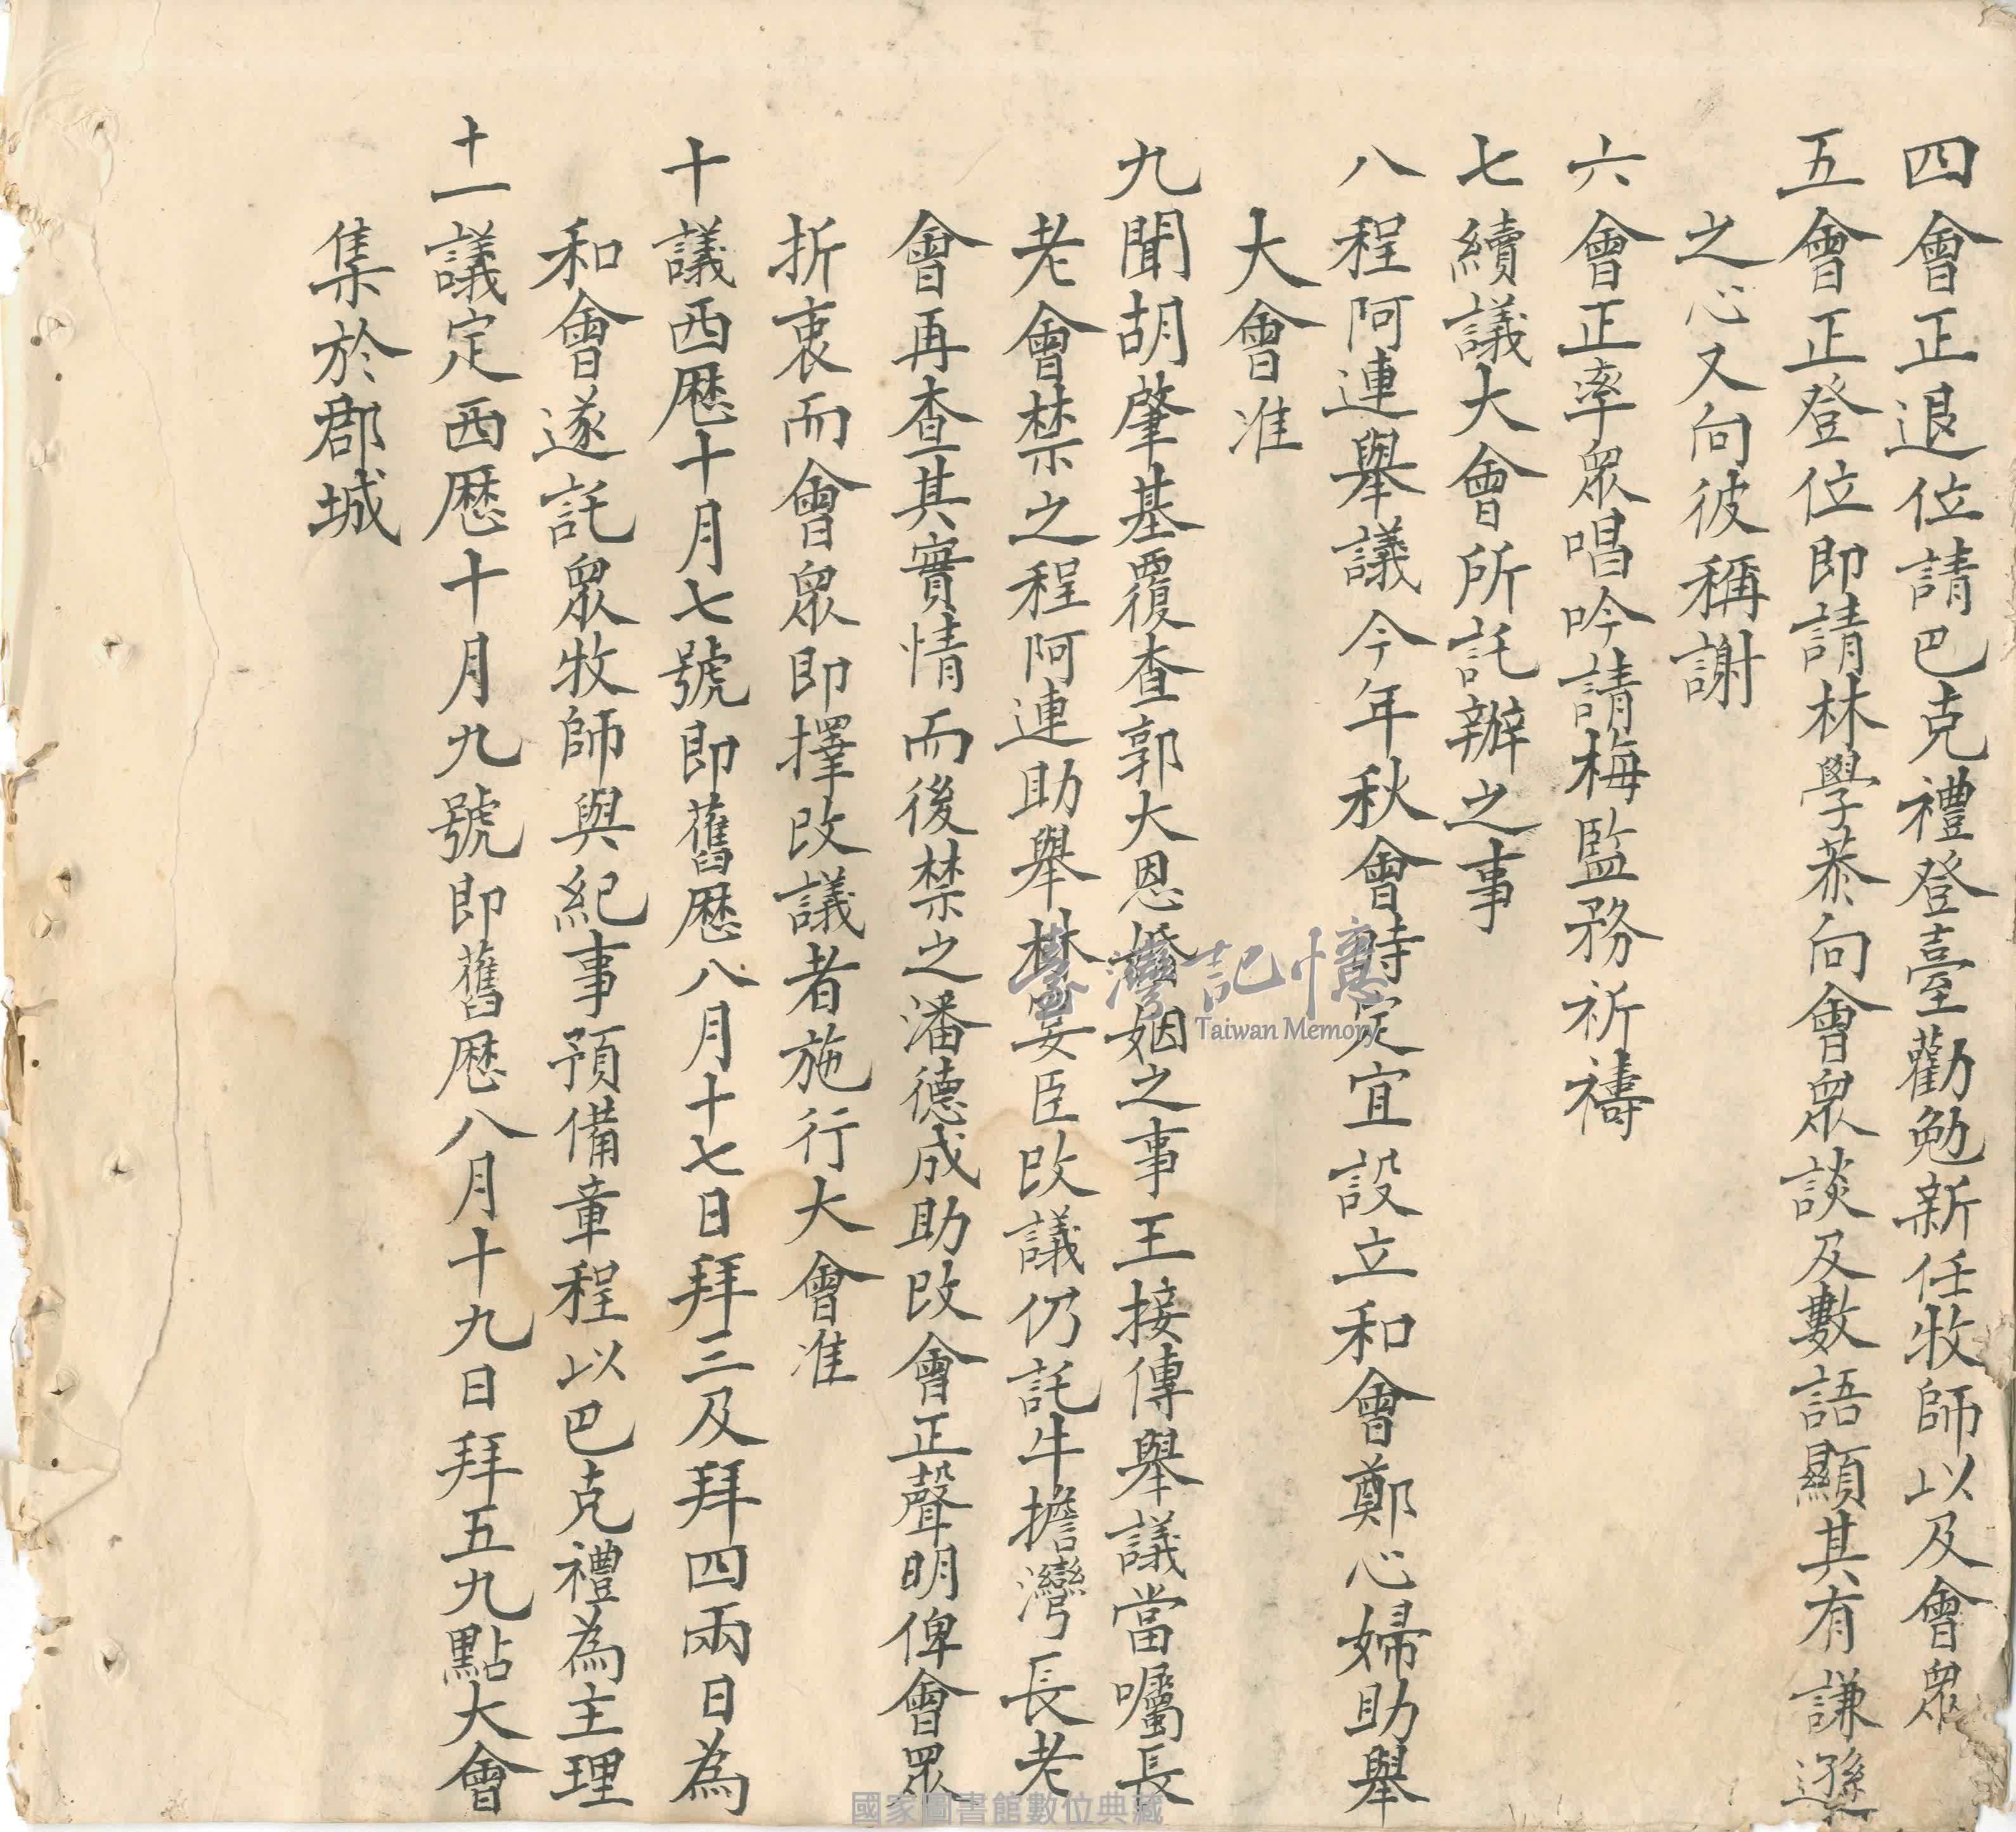 四會正退位請巴克禮登臺勸勉新任牧師以及會眾
五會正登位即請林學恭向會眾談及數語顯其有謙遜
之心又向彼稱謝
六會正率眾唱吟請梅監務祈禱
七續議大會所託辦之事
八程阿連舉議今年秋會時定宜設立和會鄭心婦助舉
大會准
九聞胡肇基覆查郭大恩婚姻之事王接傳舉議當囑長
老會禁之程阿連助舉林晏臣改議仍託牛擔灣長老
會再查其實情而後禁之潘德成助改會正聲明俾會眾
折衷而會眾即擇改議者施行大會准
十議西曆十月七號即舊曆八月十七日拜三及拜四兩日為
和會遂託眾牧師與紀事預備章程以巴克禮為主理
十一議定西曆十月九號即舊曆八月十九日拜五九點大會
集於郡城
臺灣記憶
Taiwan Memory
國家圖書館數位典藏